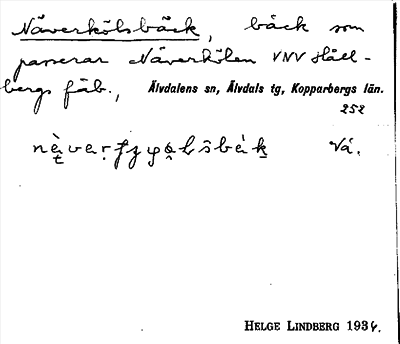 Näverkölsbäck, bäck som
passerar Näverkölen VNV Håll-
bergs fäb., Älvdalens sn, Älvdals tg, Kopparbergs län.
252
Vå.
HELGE LINDBERG 1934.